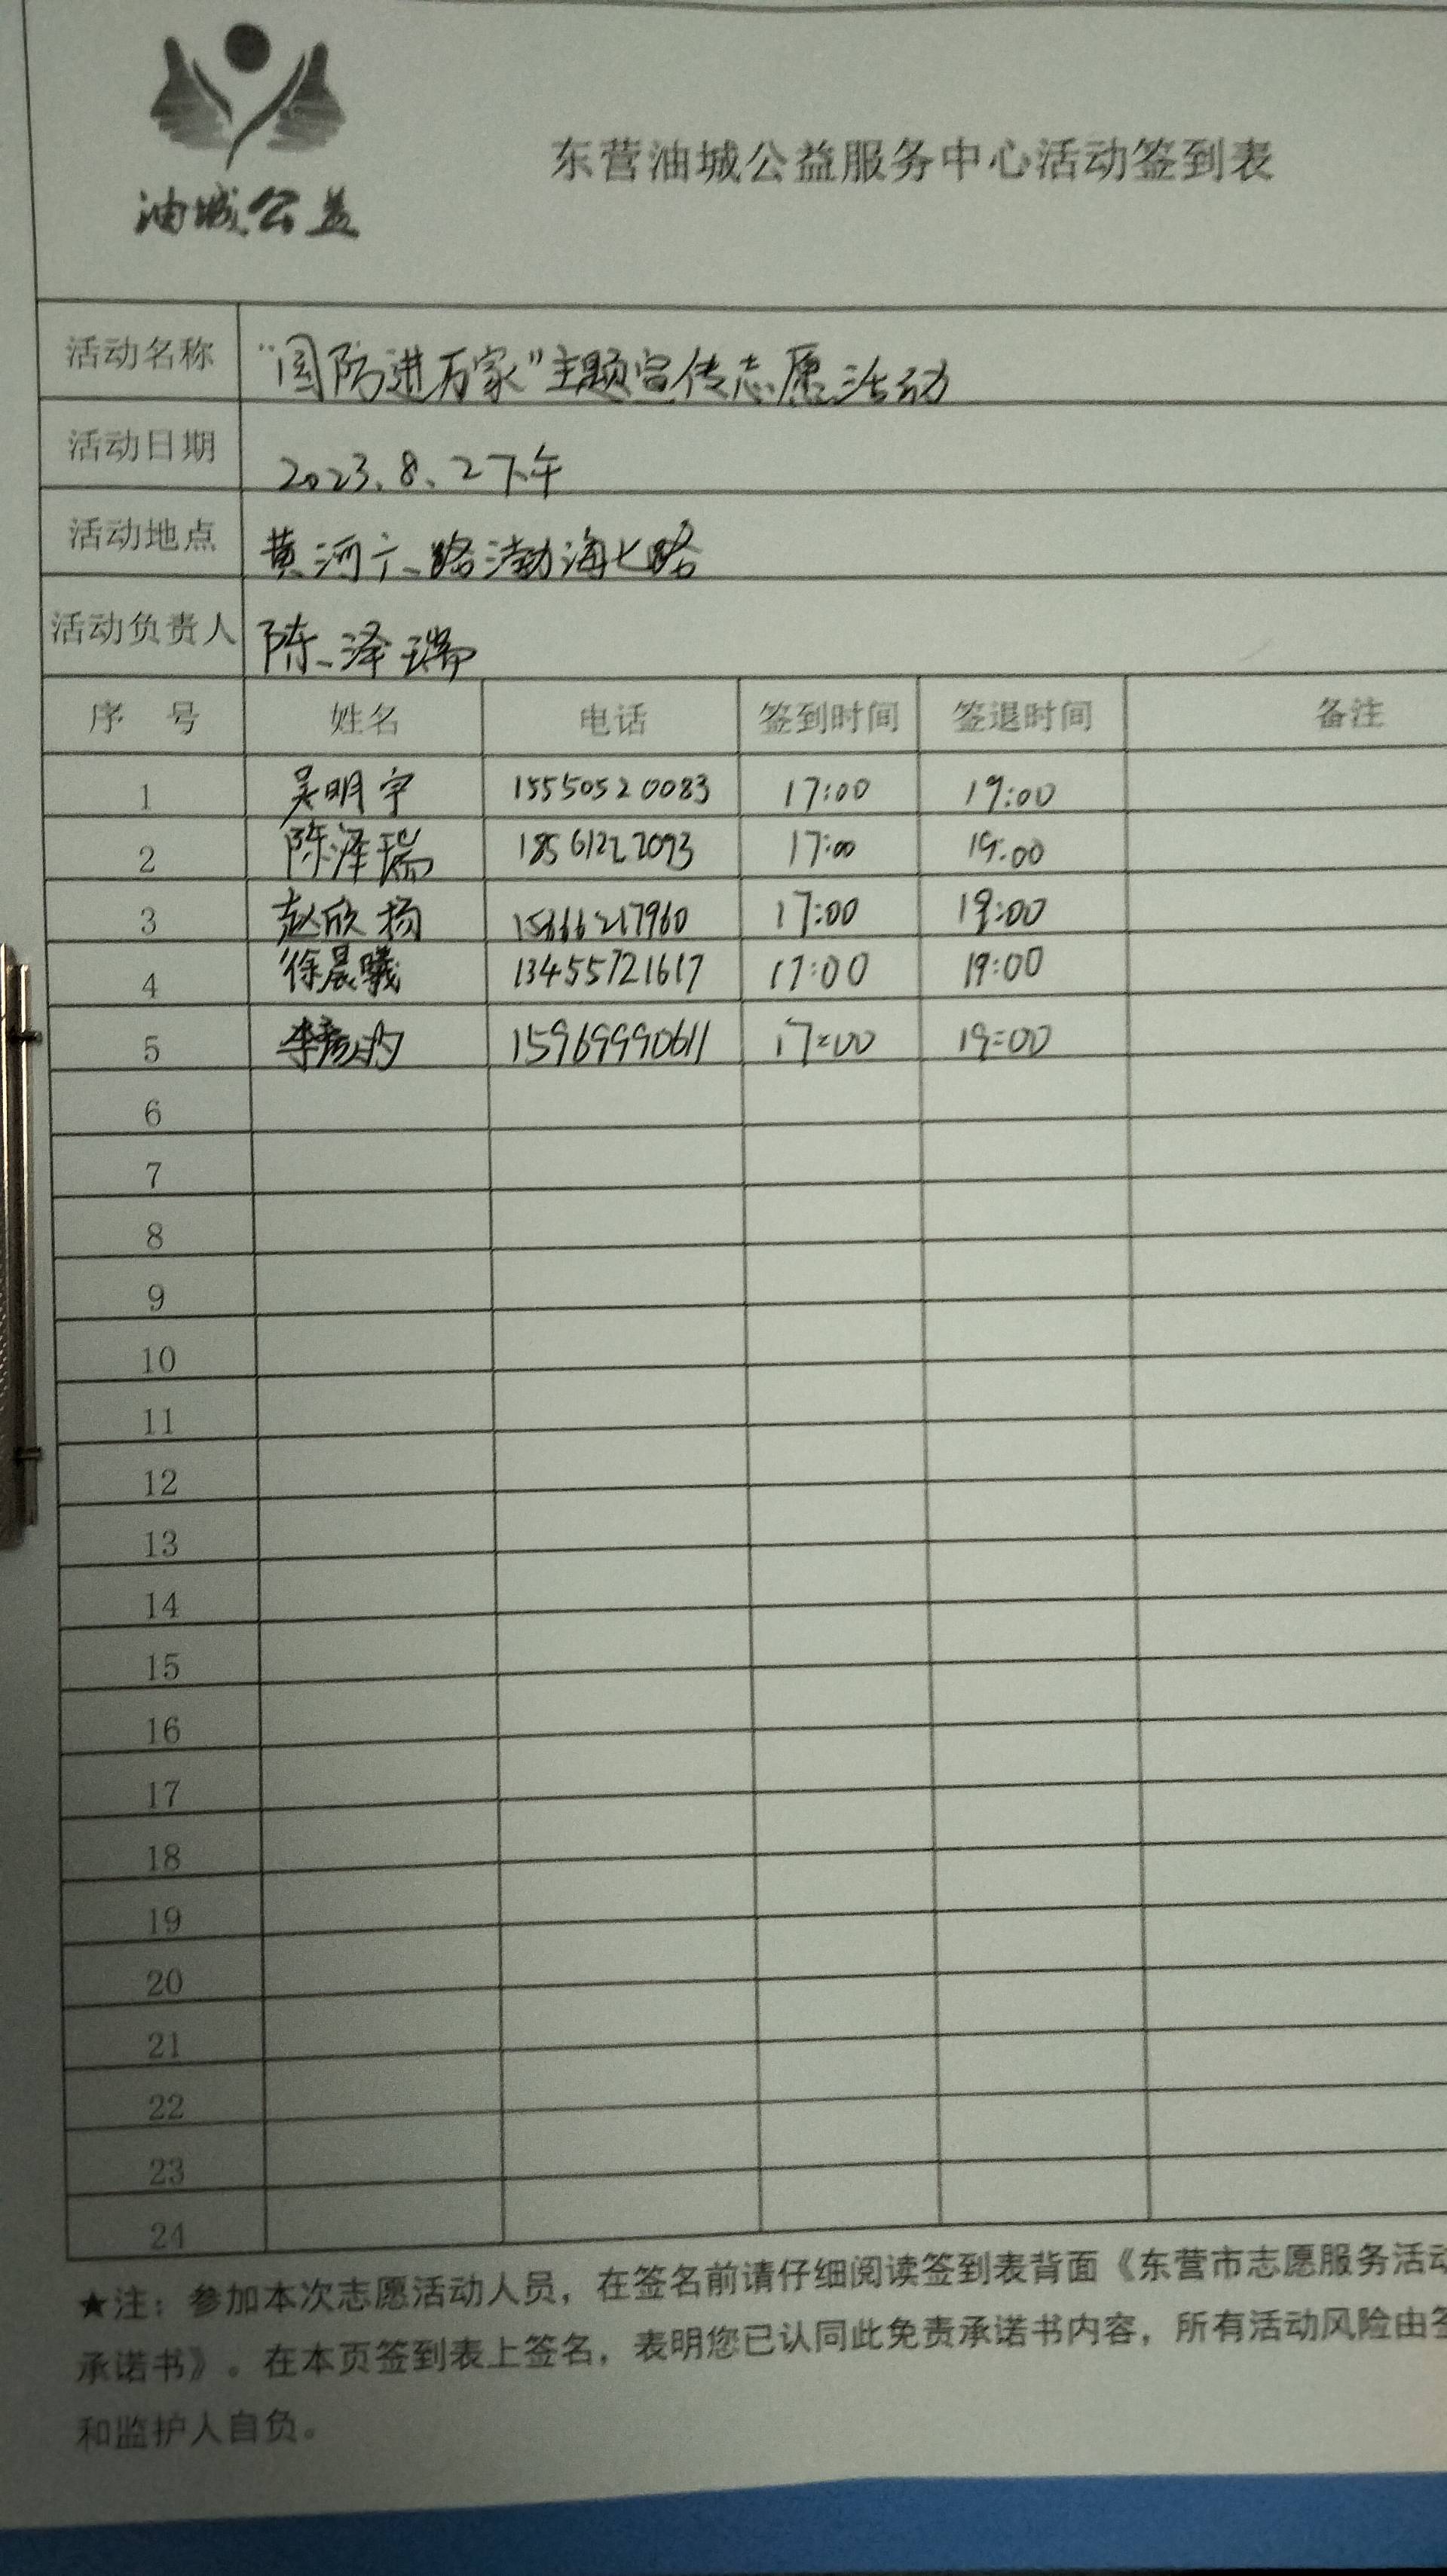 油城公益
东营油城公益服务中心活动签到表
活动名称 “国防进万家”主题宣传志愿活动
活动日期 2023.8.2下午
活动地点 黄河六路渤海七路
活动负责人 陈泽瑞
序 号 姓名 电话 签到时间 签退时间 备注
1 吴明宇 15550520083 17:00 19:00
2 陈泽瑞 18561222093 17:00 19:00
3 赵欣扬 17:00 19:00
4 徐晨曦 13455721617 17:00 19:00
5 15969990611 17:00 19:00
6
7
8
9
10
11
12
13
14
15
16
17
18
19
20
21
22
23
24
★注：参加本次志愿活动人员，在签名前请仔细阅读签到表背面《东营市志愿服务活动
承诺书》。在本页签到表上签名，表明您已认同此免责承诺书内容，所有活动风险由签
和监护人自负。